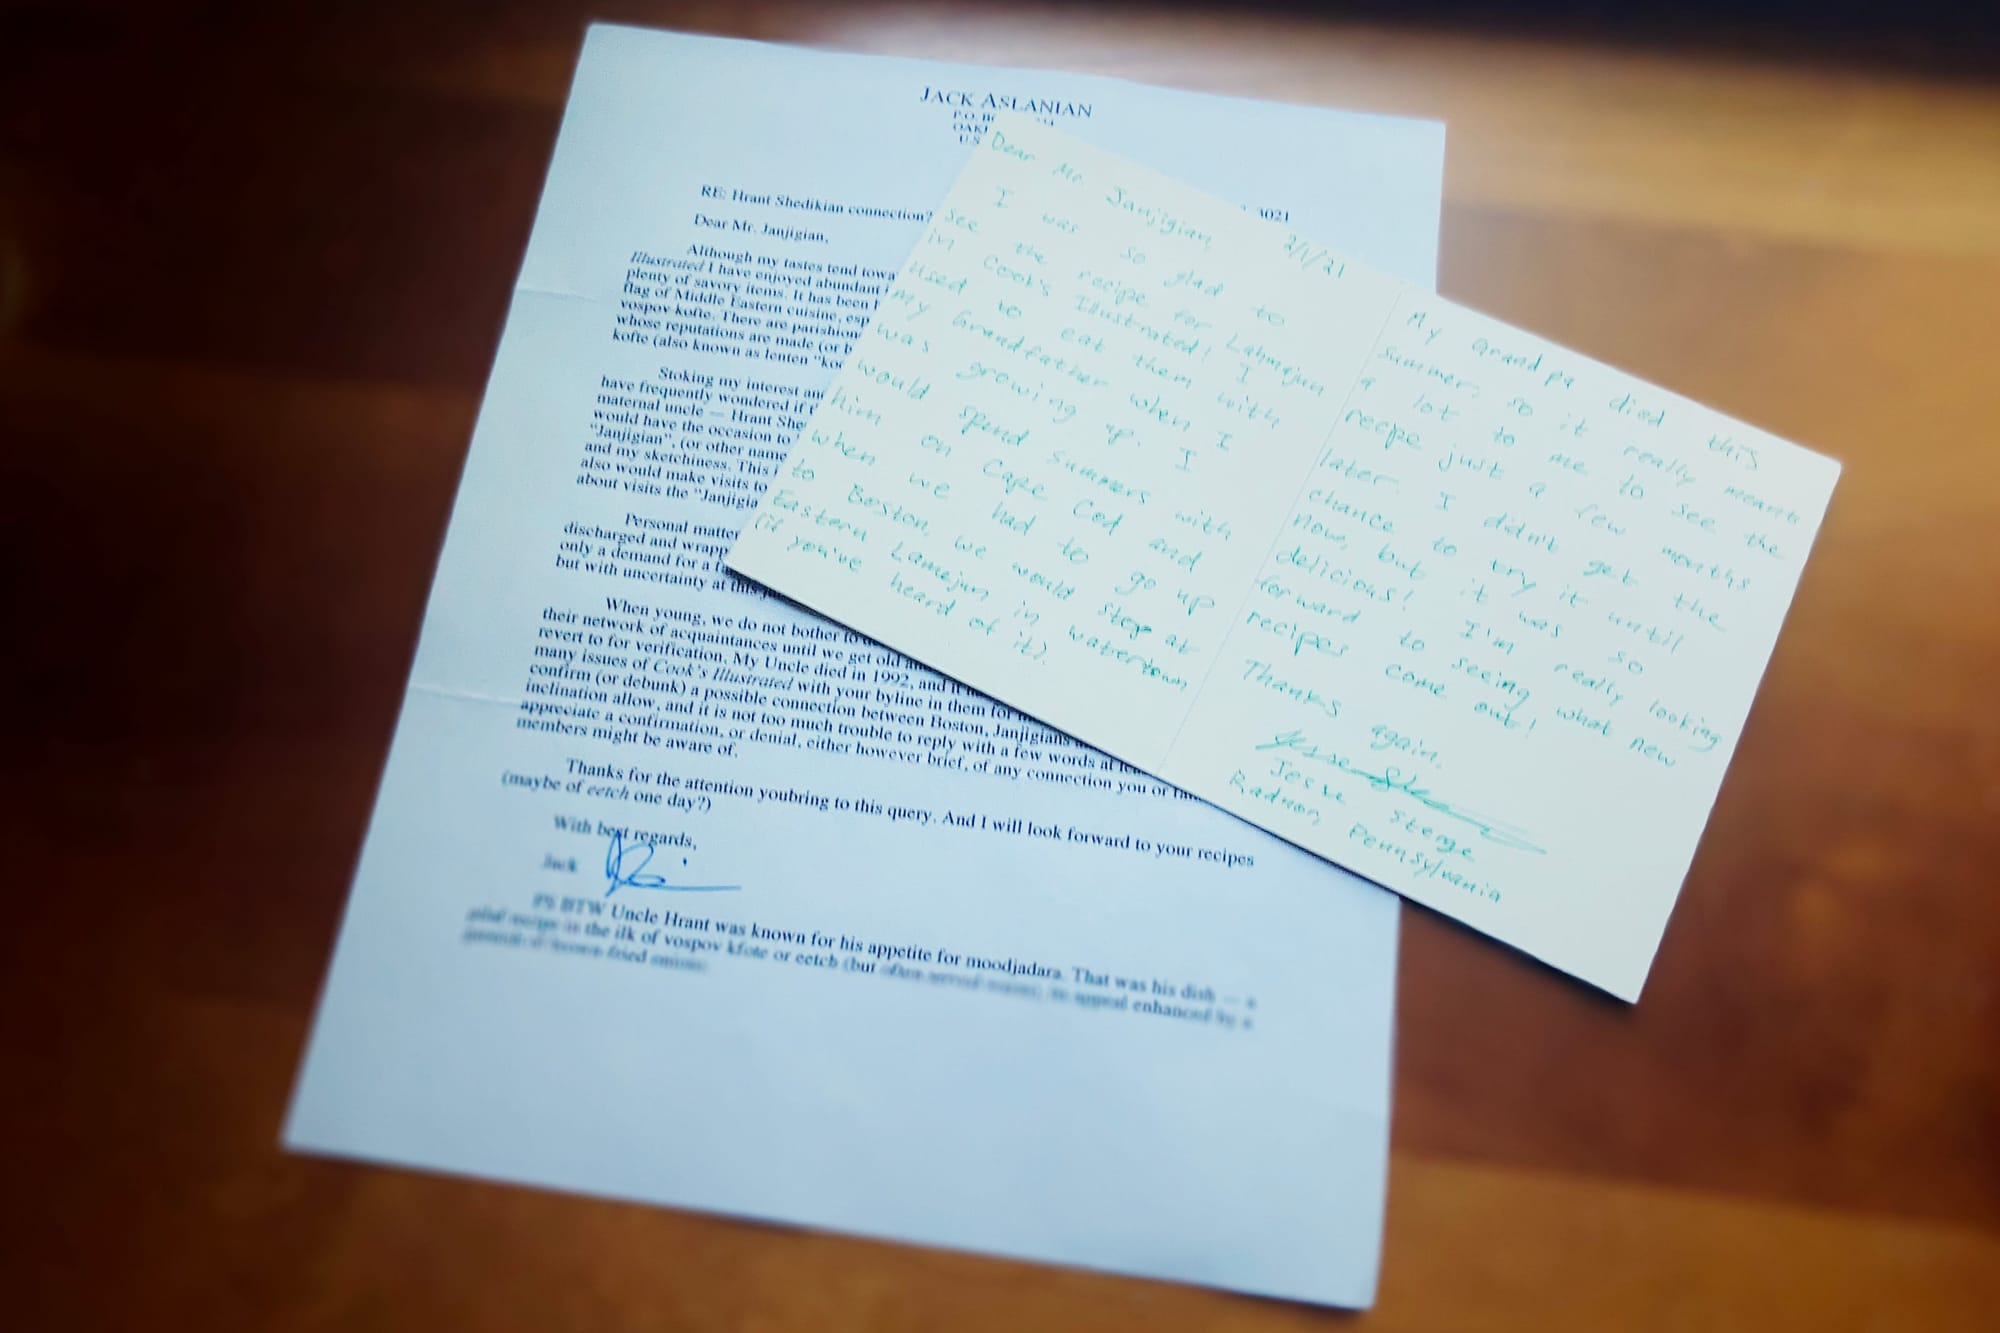 JACK ASLANIAN
P.O. B
OAK
U.S
3021
RE: Hrant Shedikian connection?
Dear Mr. Janjigian,
Although my tastes tend towa
Illustrated I have enjoyed abundant
plenty of savory items. It has been
flag of Middle Eastern cuisine, esp
vospov kofte. There are parishion
whose reputations are made (or b
kofte (also known as lenten "ko
Stoking my interest and
have frequently wondered if t
maternal uncle — Hrant She
would have the occasion to
"Janjigian", (or other name
and my sketchiness. This
also would make visits to
about visits the "Janjigia
Personal matter
discharged and wrapp
only a demand for a
but with uncertainty at this
When young, we do not bother to
their network of acquaintances until we get old and
revert to for verification. My Uncle died in 1992, and it
many issues of Cook's Illustrated with your byline in them for
confirm (or debunk) a possible connection between Boston, Janjigians
inclination allow, and it is not too much trouble to reply with a few words at
appreciate a confirmation, or denial, either however brief, of any connection you or
members might be aware of.
Thanks for the attention youbring to this query. And I will look forward to your recipes
(maybe of eetch one day?)
With best regards,
Jack
PS BTW Uncle Hrant was known for his appetite for moodjadara. That was his dish — a
pilaf recipe in the ilk of vospov kfote or eetch (but often served warm), its appeal enhanced by a
brown fried onions
Dear Mr. Janjigian, 2/1/21
I was so glad to
see the recipe for Lahmejun
in Cook's Illustrated! I
used to eat them with
my Grandfather when I
was growing up. I
would spend summers with
him on Cape Cod and
when we had to go up
to Boston, we would stop at
Eastern Lamejun in Watertown
(if you've heard of it).
My Grandpa died this
summer, so it really meant
a lot to me to see the
recipe just a few months
later. I didn't get the
chance to try it until
now, but it was so
delicious! I'm really looking
forward to seeing what new
recipes come out!
Thanks again,
Jesse Sterge
Radnor, Pennsylvania